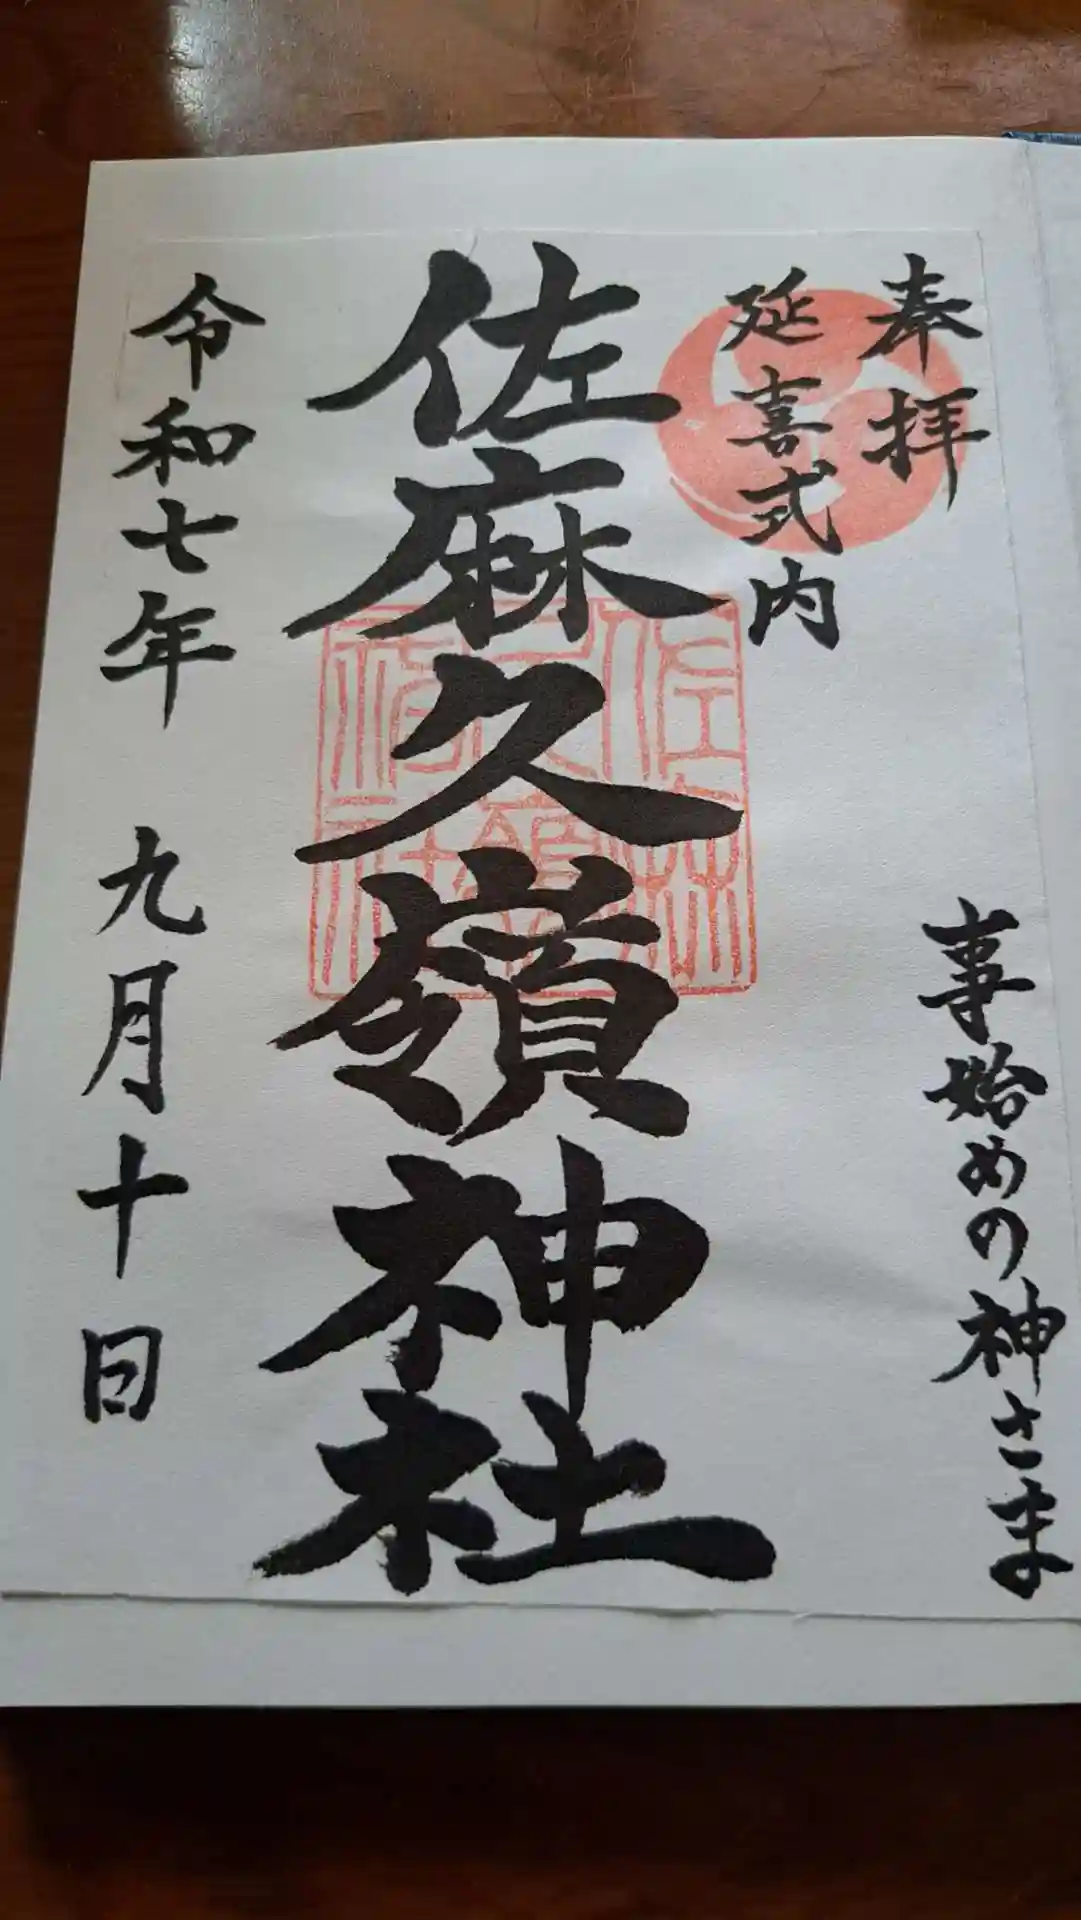 奉拝
延喜式内
事始めの神さま
佐麻久嶺神社
令和七年 九月十日
佐麻久嶺神社